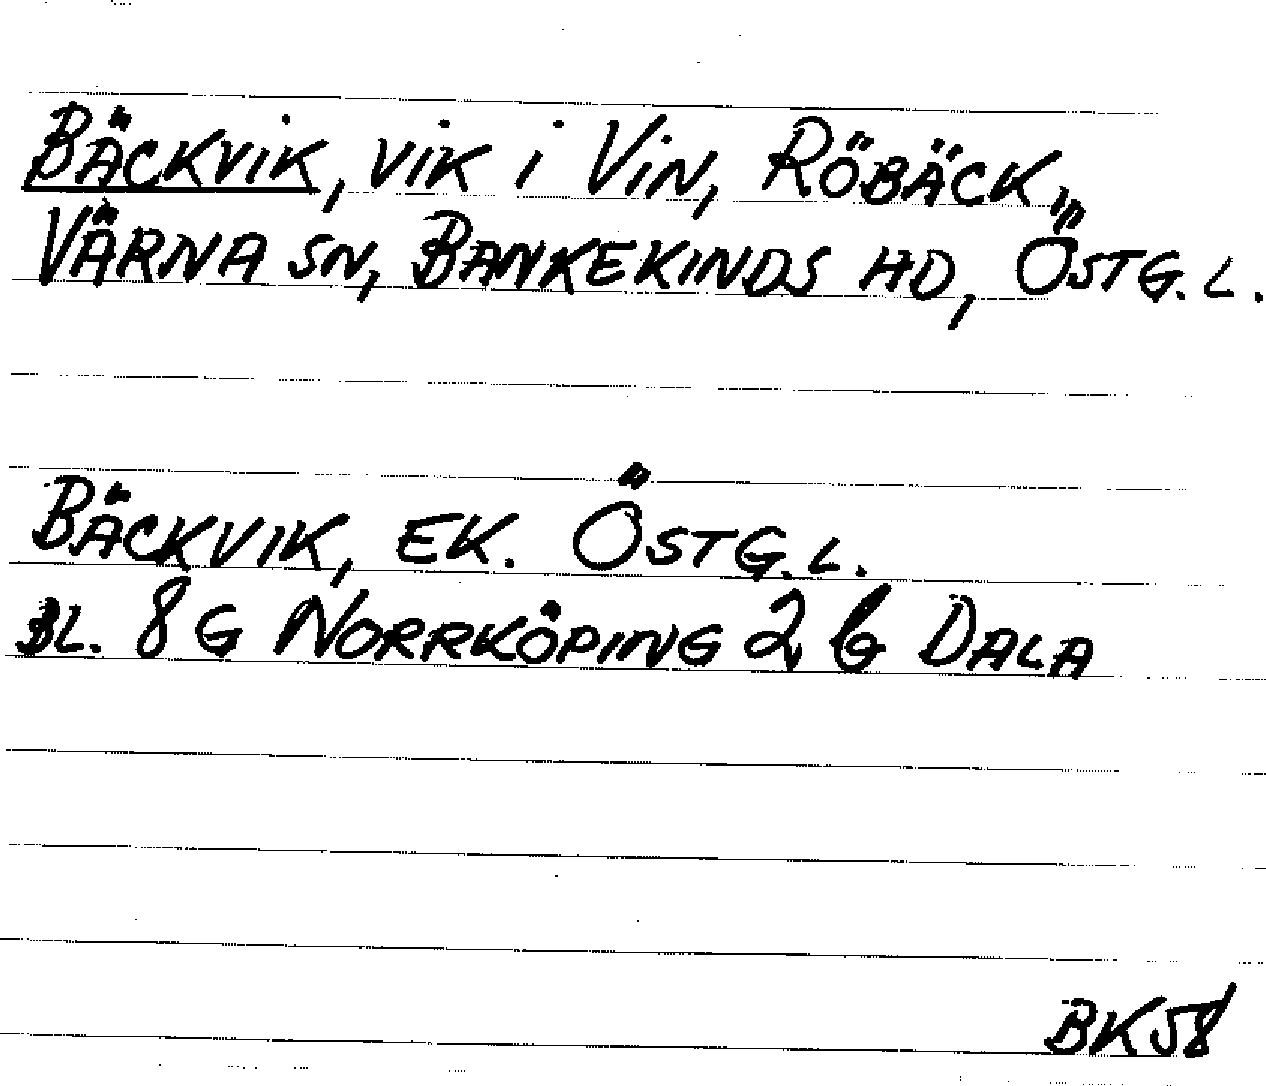 BÄCKVIK, VIK i VIN, RÖBÄCK,
VÄRNA SN, BANKEKINDS HD, ÖSTG. L.
BÄCKVIK, EK. ÖSTG. L.
BL. 8 G NORRKÖPING 2 b DALA
BK58